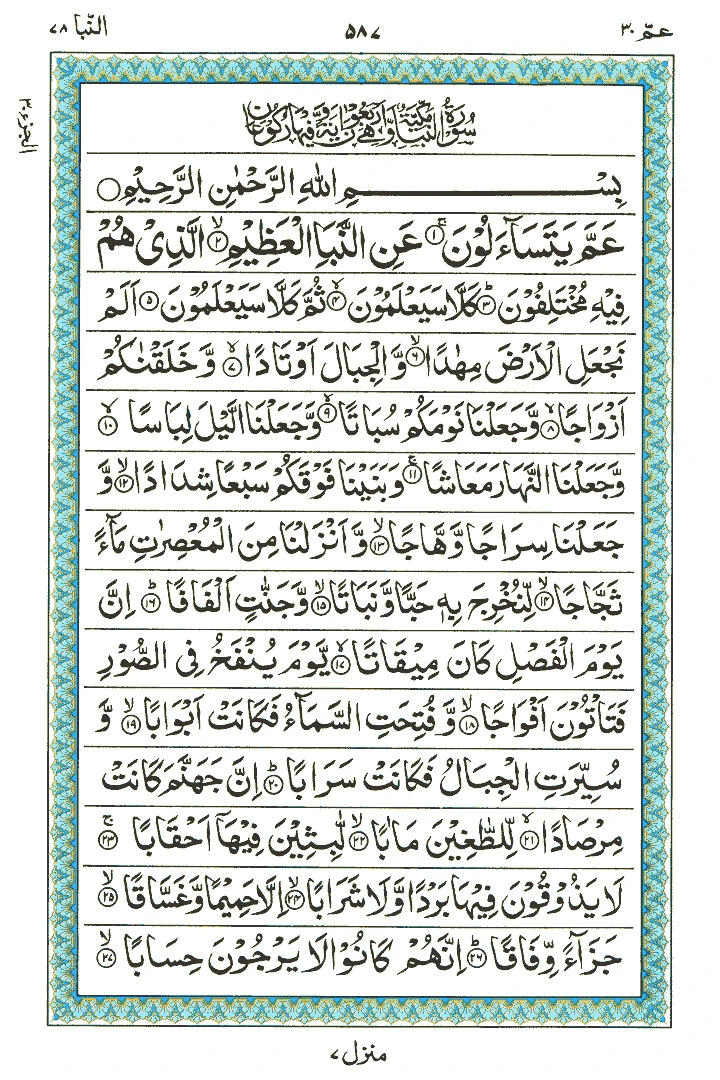 عمّ ۳۰
۵۸۷
النّبا ۷۸
الجزء ۳۰
سُوْرَةُ النَّبَاِ مَكِّيَّةٌ وَّهِيَ اَرْبَعُوْنَ اٰيَةً وَّفِيْهَا رُكُوْعَانِ
بِسْمِ اللهِ الرَّحْمٰنِ الرَّحِيْمِ ○
عَمَّ يَتَسَآءَلُوْنَ ۚ﴿۱﴾ عَنِ النَّبَاِ الْعَظِيْمِ ۙ﴿۲﴾ الَّذِىْ هُمْ
فِيْهِ مُخْتَلِفُوْنَ ؕ﴿۳﴾ كَلَّا سَيَعْلَمُوْنَ ۙ﴿۴﴾ ثُمَّ كَلَّا سَيَعْلَمُوْنَ ﴿۵﴾ اَلَمْ
نَجْعَلِ الْاَرْضَ مِهٰدًا ۙ﴿۶﴾ وَّالْجِبَالَ اَوْتَادًا ۙ﴿۷﴾ وَّخَلَقْنٰكُمْ
اَزْوَاجًا ۙ﴿۸﴾ وَّجَعَلْنَا نَوْمَكُمْ سُبَاتًا ۙ﴿۹﴾ وَّجَعَلْنَا الَّيْلَ لِبَاسًا ۙ﴿۱۰﴾
وَّجَعَلْنَا النَّهَارَ مَعَاشًا ۚ﴿۱۱﴾ وَبَنَيْنَا فَوْقَكُمْ سَبْعًا شِدَادًا ۙ﴿۱۲﴾ وَّ
جَعَلْنَا سِرَاجًا وَّهَّاجًا ۙ﴿۱۳﴾ وَّاَنْزَلْنَا مِنَ الْمُعْصِرٰتِ مَآءً
ثَجَّاجًا ۙ﴿۱۴﴾ لِّنُخْرِجَ بِهٖ حَبًّا وَّنَبَاتًا ۙ﴿۱۵﴾ وَّجَنّٰتٍ اَلْفَافًا ؕ﴿۱۶﴾ اِنَّ
يَوْمَ الْفَصْلِ كَانَ مِيْقَاتًا ۙ﴿۱۷﴾ يَّوْمَ يُنْفَخُ فِى الصُّوْرِ
فَتَاْتُوْنَ اَفْوَاجًا ۙ﴿۱۸﴾ وَّفُتِحَتِ السَّمَآءُ فَكَانَتْ اَبْوَابًا ۙ﴿۱۹﴾ وَّ
سُيِّرَتِ الْجِبَالُ فَكَانَتْ سَرَابًا ؕ﴿۲۰﴾ اِنَّ جَهَنَّمَ كَانَتْ
مِرْصَادًا ۙ﴿۲۱﴾ لِّلطّٰغِيْنَ مَاٰبًا ۙ﴿۲۲﴾ لّٰبِثِيْنَ فِيْهَآ اَحْقَابًا ۚ﴿۲۳﴾
لَا يَذُوْقُوْنَ فِيْهَا بَرْدًا وَّلَا شَرَابًا ۙ﴿۲۴﴾ اِلَّا حَمِيْمًا وَّغَسَّاقًا ۙ﴿۲۵﴾
جَزَآءً وِّفَاقًا ؕ﴿۲۶﴾ اِنَّهُمْ كَانُوْا لَا يَرْجُوْنَ حِسَابًا ۙ﴿۲۷﴾
منزل ۷